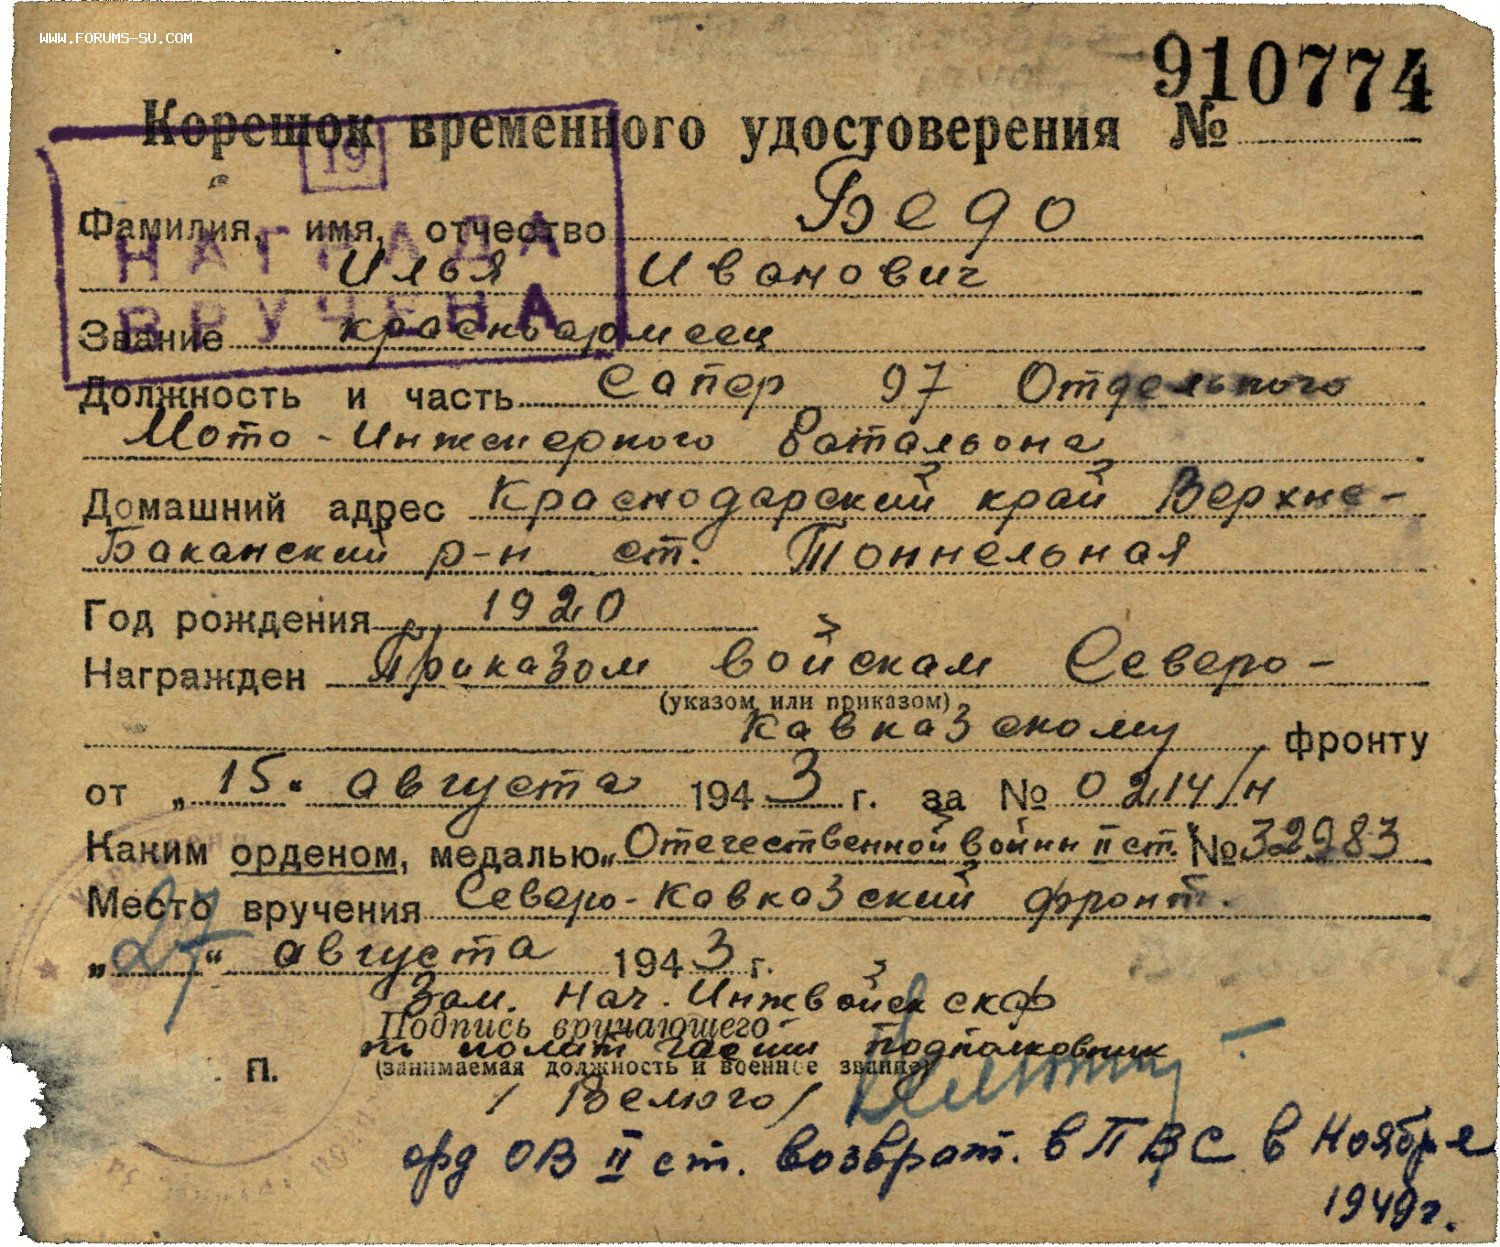 WWW.FORUMS-SU.COM
910774
Корешок временного удостоверения №
19
НАГРАДА
ВРУЧЕНА
Фамилия, имя, отчество Бедо
Илья Иванович
Звание красноармеец
Должность и часть Сапер 97 Отдельного
Мото-Инженерного батальона
Домашний адрес Краснодарский край Верхне-
Баканский р-н ст. Тоннельная
Год рождения 1920
Награжден Приказом войскам Северо-
(указом или приказом)
Кавказскому фронту
от „15" августа 1943 г. за № 0214/н
Каким орденом, медалью „Отечественной войны II ст. № 32983
Место вручения Северо-Кавказский фронт.
„27" августа 1943 г.
Зам. Нач. Инжвойск скф
Подпись вручающего
по полит части подполковник
(занимаемая должность и военное звание)
П.
/ Велюго /
орд ОВ II ст. возврат. в ПВС в Ноябре
1949г.